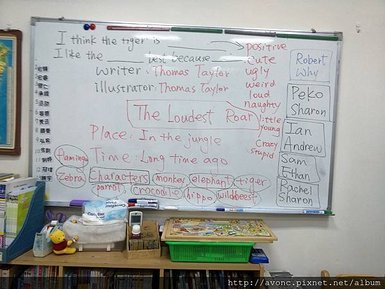 I think the tiger is
I like the ____ best because ____
positive
cute
ugly
weird
loud
naughty
little
young
crazy
stupid
writer: Thomas Taylor
illustrator: Thomas Taylor
The Loudest Roar
Place: In the jungle
Time: Long time ago
flamingo
Zebra
Characters: monkey elephant tiger
parrot crocodile hippo wildbeest
Robert
Why
Peko
Sharon
Ian
Andrew
Sam
Ethan
Rachel
Sharon
http://avonc.pixnet.net/album